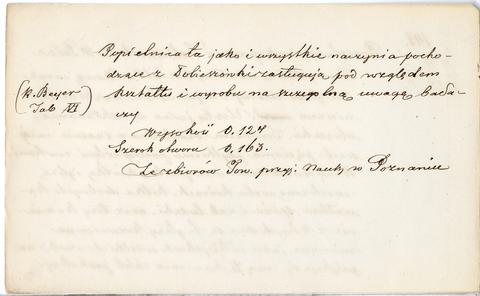 Popielnica ta jako i wszystkie naczynia pocho-
dzące z Dobieszówki zasługują pod względem
(K. Beyer
Tab VI)
kształtu i wyrobu na szczególną uwagę bada-
czy
Wysokość 0.124
Szerok otworu 0.163.
Ze zbiorów Tow. przyj: Nauk w Poznaniu